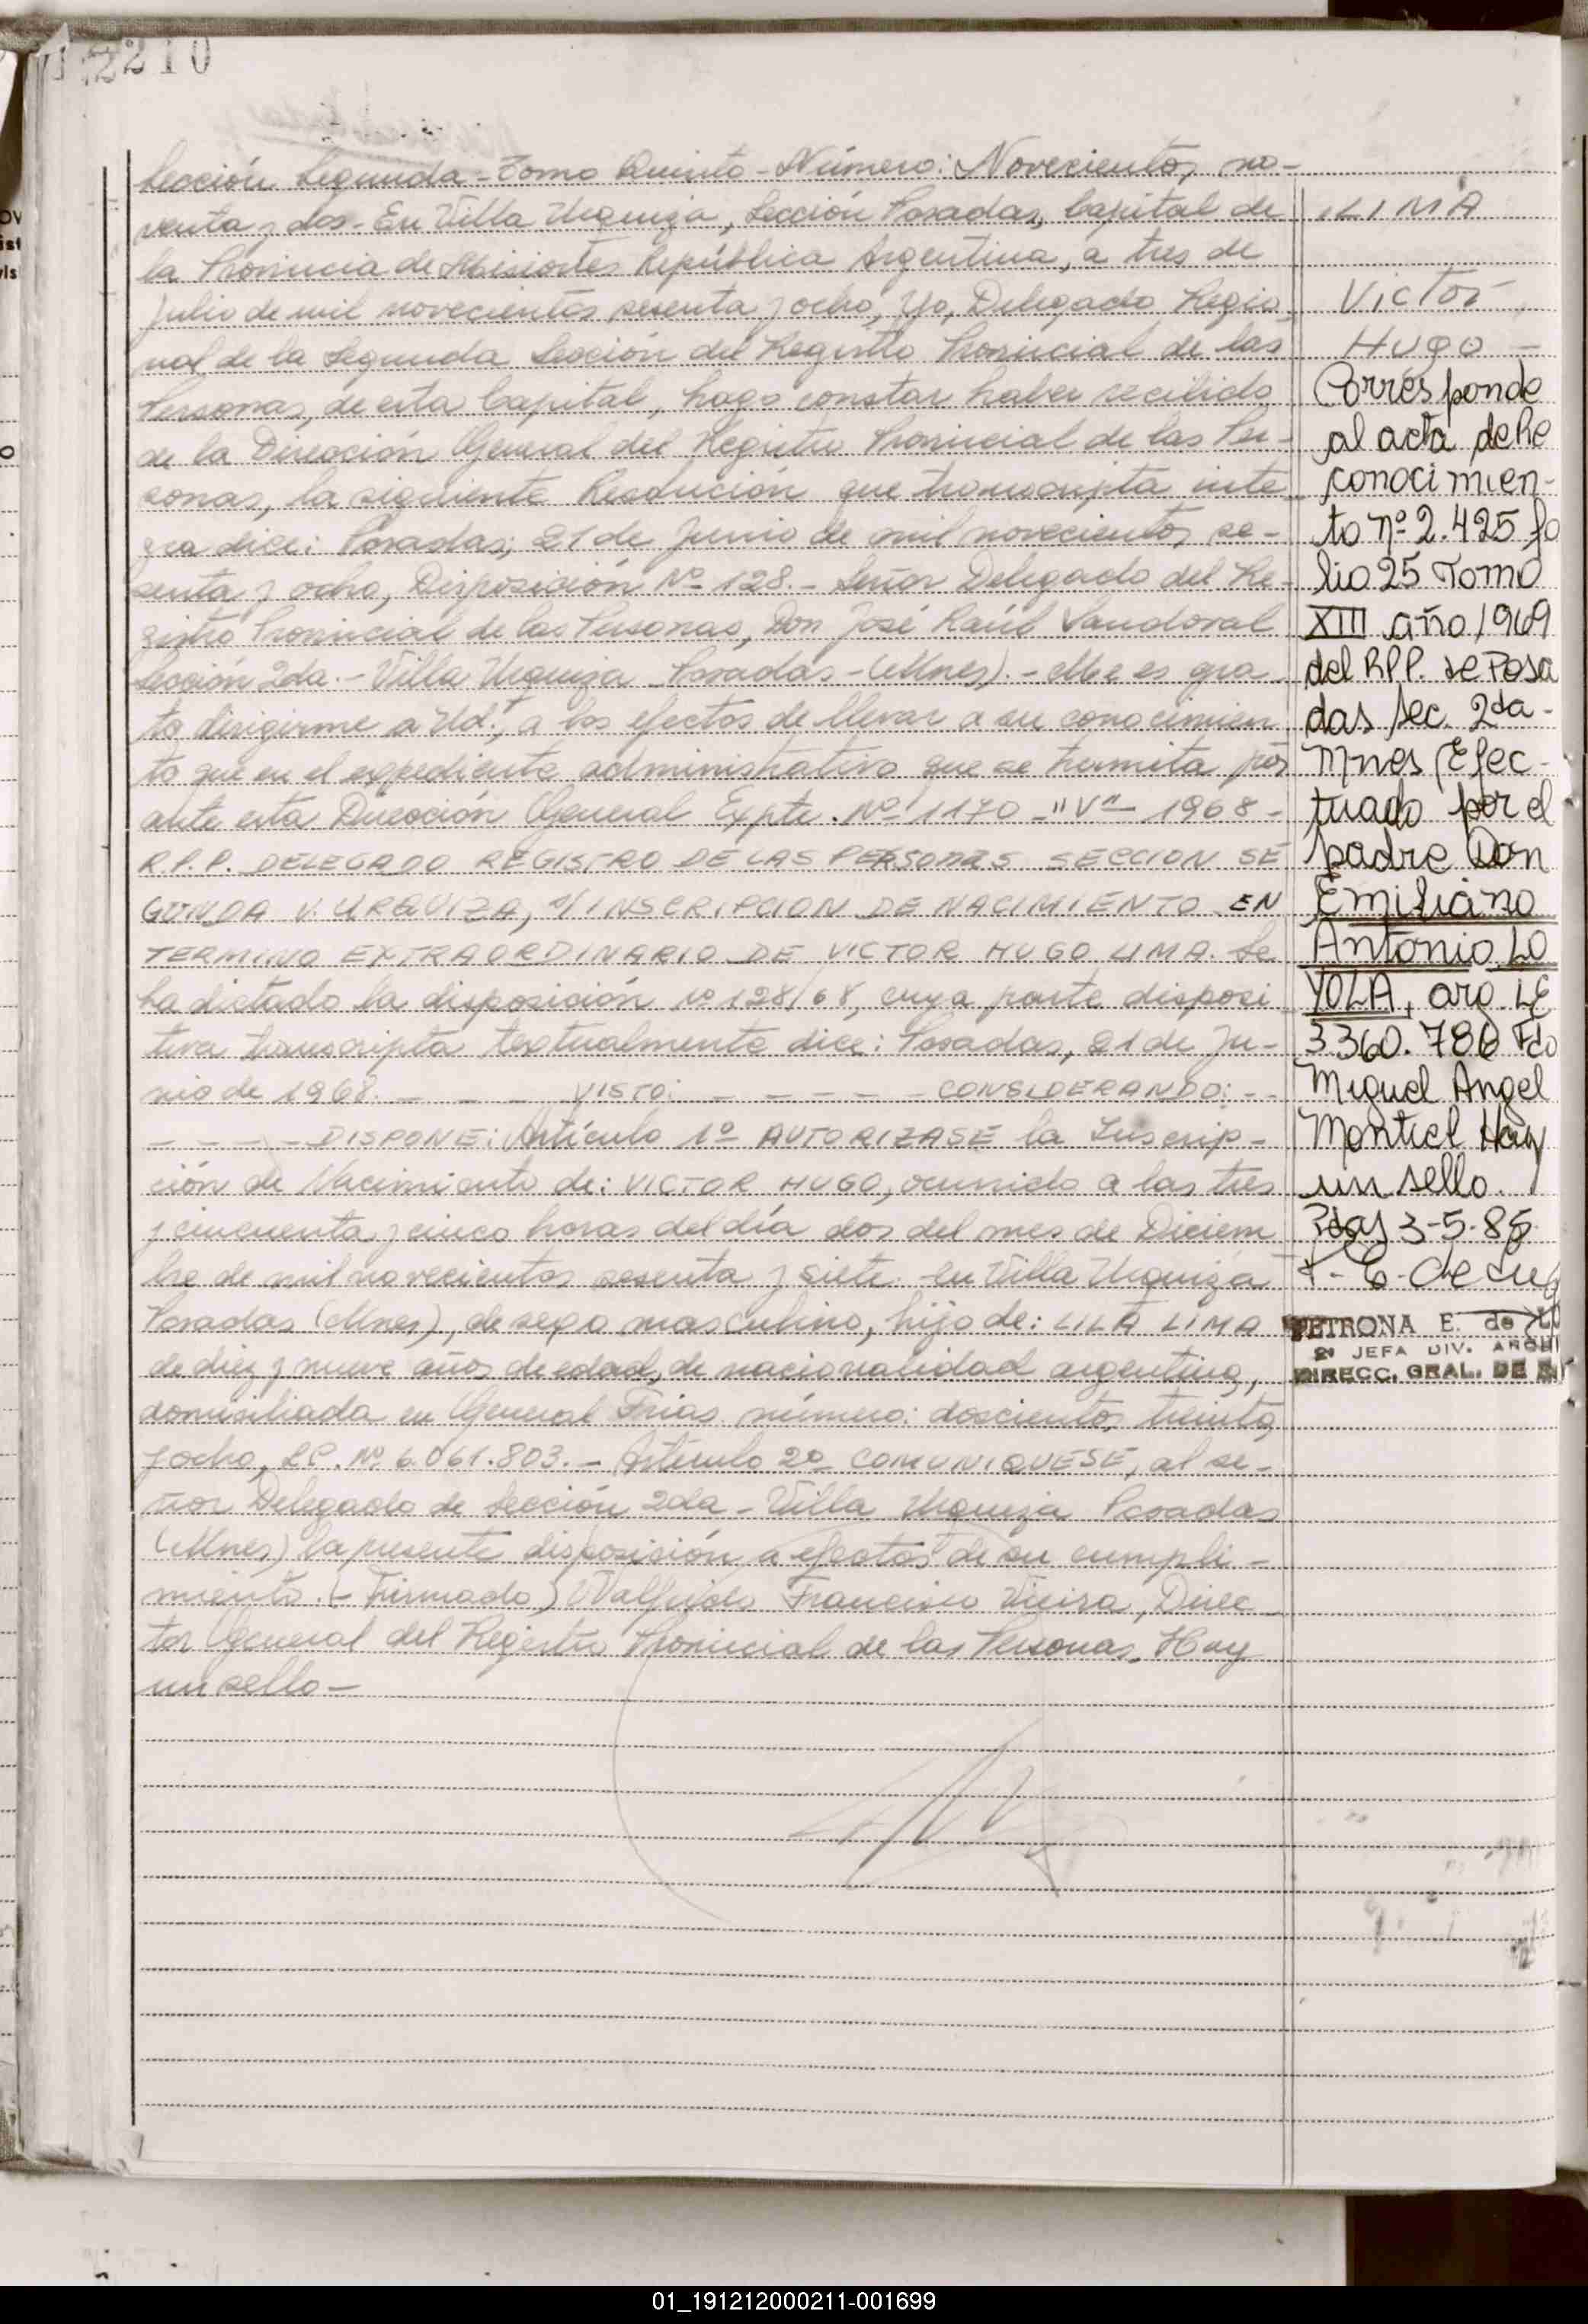 2210
Sección Segunda - Tomo Quinto - Número: Novecientos, no-
venta y dos - En Villa Urquiza, Sección Posadas, Capital de
la Provincia de Misiones República Argentina, a tres de
julio de mil novecientos sesenta y ocho, Yo, Delegado Regio-
nal de la Segunda Sección del Registro Provincial de las
Personas, de esta Capital, hago constar haber recibido
de la Dirección General del Registro Provincial de las Per-
sonas, la siguiente Resolución que transcripta inte-
gra dice: Posadas, 21 de Junio de mil novecientos se-
senta y ocho, Disposición Nº 128.- Señor Delegado del Re-
gistro Provincial de las Personas, Don José Raúl Sandoval
Sección 2da.- Villa Urquiza Posadas - (Mnes).- Me es gra
to dirigirme a Ud., a los efectos de llevar a su conocimien
to que en el expediente administrativo que se tramita por
ante esta Dirección General Expte. Nº 1170 - "V" - 1968 -
R.P.P. DELEGADO REGISTRO DE LAS PERSONAS SECCION SE
GUNDA V. URQUIZA, s/ INSCRIPCION DE NACIMIENTO EN
TERMINO EXTRAORDINARIO DE VICTOR HUGO LIMA. Se
ha dictado la disposición Nº 128/68, cuya parte disposi
tiva transcripta textualmente dice: Posadas, 21 de Ju-
nio de 1968. - - - VISTO: - - - - - CONSIDERANDO: - -
- - - - DISPONE: Artículo 1º AUTORIZASE la Inscrip-
ción de Nacimiento de: VICTOR HUGO, ocurrido a las tres
y cincuenta y cinco horas del día dos del mes de Diciem
bre de mil novecientos sesenta y siete en Villa Urquiza
Posadas (Mnes), de sexo masculino, hijo de: LILA LIMA
de diez y nueve años de edad, de nacionalidad argentina,
domiciliada en General Frias número: doscientos treinta
y ocho, LC. Nº 6.061.803.- Artículo 2º COMUNIQUESE, al se-
ñor Delegado de Sección 2da - Villa Urquiza Posadas
(Mnes) la presente disposición a efectos de su cumpli-
miento. (Firmado) Walfrido Francisco Vieira, Direc-
tor General del Registro Provincial de las Personas. Hay
un sello -
LIMA
Victor
Hugo -
Corresponde
al acta de Re
conocimien-
to nº 2.425 fo
lio 25 Tomo
XIII año 1969
del RPP. de Posa
das Sec. 2da -
Mnes Efec-
tuado por el
padre Don
Emiliano
Antonio LO
YOLA, arg. LE
3360.786 Fdo
Miguel Angel
Montiel Hay
un sello.
Pdas 3-5-85
PETRONA E. de
2º JEFA DIV. ARCHI
DIRECC. GRAL. DE
01_191212000211-001699